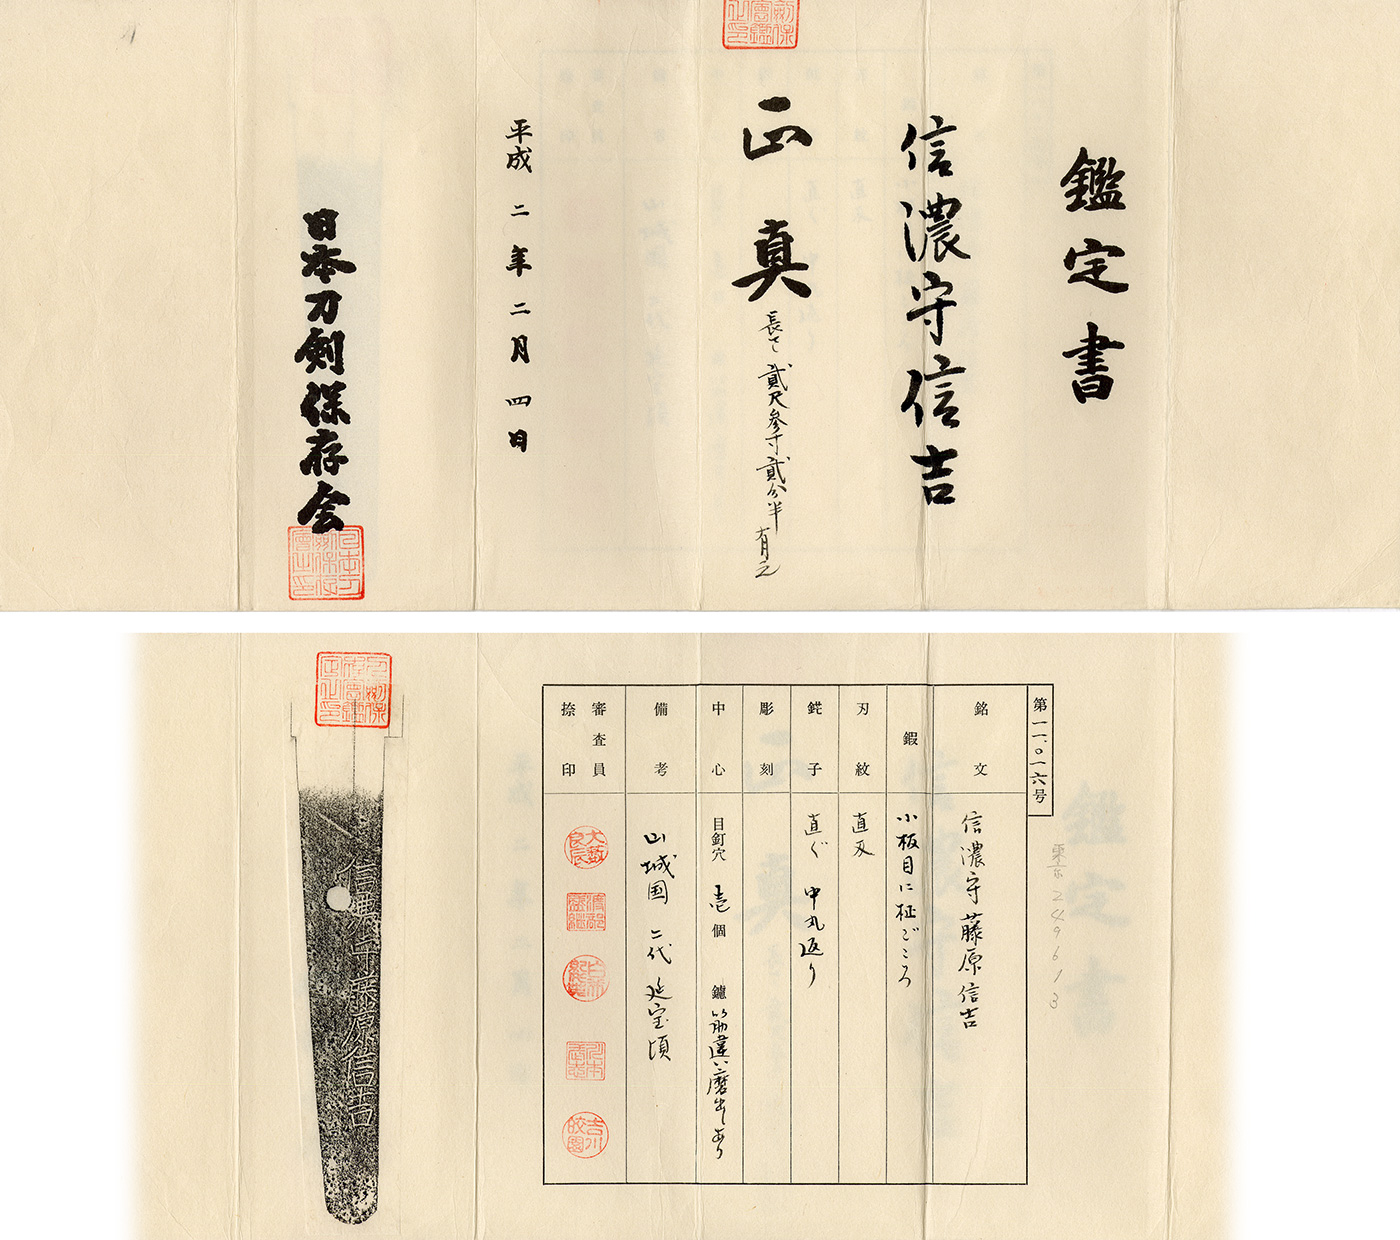 鑑定書
信濃守信吉
正真
長さ貳尺参寸貳分半
有之
平成二年二月四日
日本刀剣保存会
第一一〇一六号
東京249613
銘文
信濃守藤原信吉
鍜
小板目に柾ごころ
刃紋
直刃
鋩子
直ぐ 中丸返り
彫刻
中心
目釘穴 壱個 鑢 筋違い磨出しあり
備考
山城国 二代 延宝頃
審査員
捺印
信濃守藤原信吉